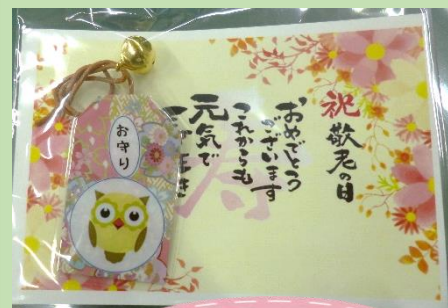 祝
敬老の日
おめでとう
ございます
これからも
元気で
寿
お守り